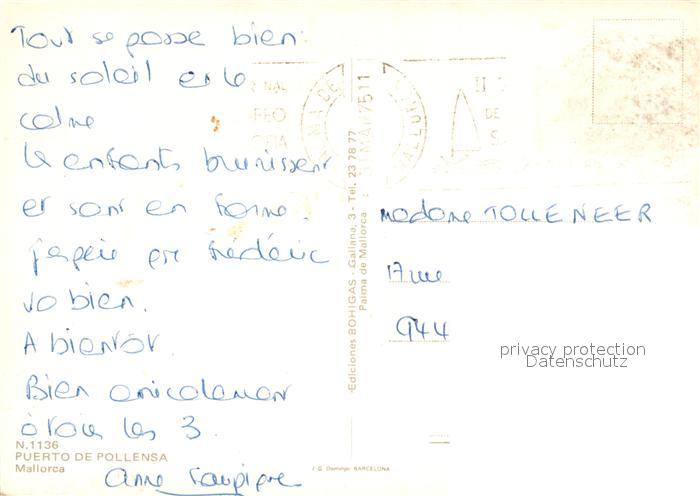 Tout se passe bien.
du soleil et le
calme
le enfants brunissent
et sont en forme.
j'espère que Frédéric
va bien.
A bientôt.
Bien amicalement
à tous les 3.
Anne
N.1136
PUERTO DE POLLENSA
Mallorca
Ediciones BOHIGAS - Gallana, 3 - Tel. 23 78 77
Palma de Mallorca
J. G. Domingo BARCELONA
Madame TOLLENEER
17 rue
944
privacy protection
Datenschutz